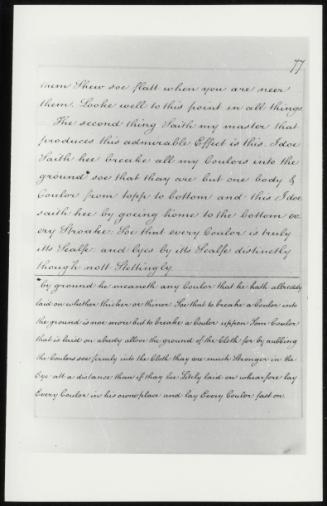 77
them Shew soe flatt when you are neer
them. Looke well to this point in all things
The second thing Saith my master that
produces this admirable Effect is this. I doe
Saith hee breake all my Coulors into the
ground* soe that thay are but one body &
Coulor from topp to bottom and this I doe
saith hee by goeing home to the bottom ev
ery Stroake. Soe that every Coulor is truly
itts Sealfe and lyes by itts Sealfe distinctly
though nott Slettingly
*by ground he meaneth any Coulor that he hath allready
laid on whether thicker or thiner Soe that to breake a Coulor into
the ground is noe more but to breake a Coulor uppon Som Coulor
that is laid on alredy allsoe the ground of the Cloth for by rubbing
the Coulors soe firmly into the Cloth thay are much Stronger in the
Eye att a distance than if thay bee Sleitly laid on whearfore lay
Every Coulor in his owne place and lay Every Coulor fast on